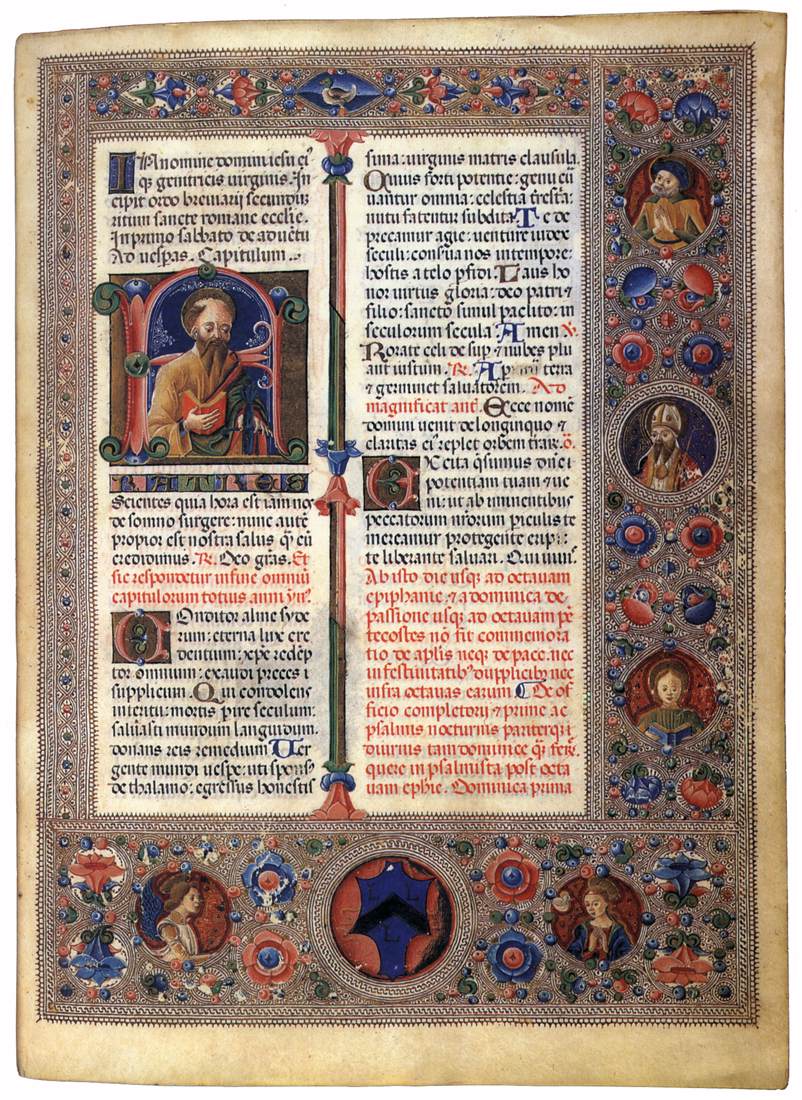 In nomine domini iesu xp̄i
q̄ genitricis uirginis. In
cipit ordo breuiarij secundum
ritum sancte romane ecclie.
In primo sabbato de aduētu
Ad uesp̄as. Capitulum.
FRATRES
Scientes quia hora est iam nos
de somno surgere: nunc autē
propior est nostra salus q̄ cū
credidimus. R. Deo grās. Et
sic respondetur in fine omniū
capitulorum totius anni
Conditor alme syde
rum: eterna lux cre
dentium: xp̄e redēp
tor omnium: exaudi preces
supplicum. Qui condolens
interitu: mortis pire seculum:
saluasti mundum languidum.
donans reis remedium Uer
gente mundi uespe: uti sponsus
de thalamo: egressus honestis
sima: uirginis matris clausula.
Cuius forti potentie: genu cū
uantur omnia: celestia trestīa:
nutu fatentur subdita Te de
precamur agie: uenture iudex
seculi: conserua nos in tempore:
hostis a telo pfidi. Laus ho
nor uirtus gloria: deo patri
filio: sancto simul paclito: in
seculorum secula Amen V.
Rorate celi desup & nubes plu
ant iustum. R. Ap terra
& germinet saluatorem. Ad
magnificat ant. Ecce nomē
domini uenit de longinquo &
claritas ei replet orbem trar. ō.
Excita q̄sumus dn̄e
potentiam tuam & ue
ni: ut ab iminentibus
peccatorum nr̄orum piculis te
mereamur protegente erip
te liberante saluari. Qui uiuis
Ab isto die usq ad octauam
epiphanie & a dominica de
passione usq ad octauam pē
tecostes nō fit commemora
tio de aplis neq de pace. nec
in festiuitatib duplicib nec
infra octauas earum De of
ficio completorij & prime ac
psalmis nocturnis pariter qi
diurnis tam dominice q̄ ferie.
quere in psalmista post octa
uam ephie. Dominica prima